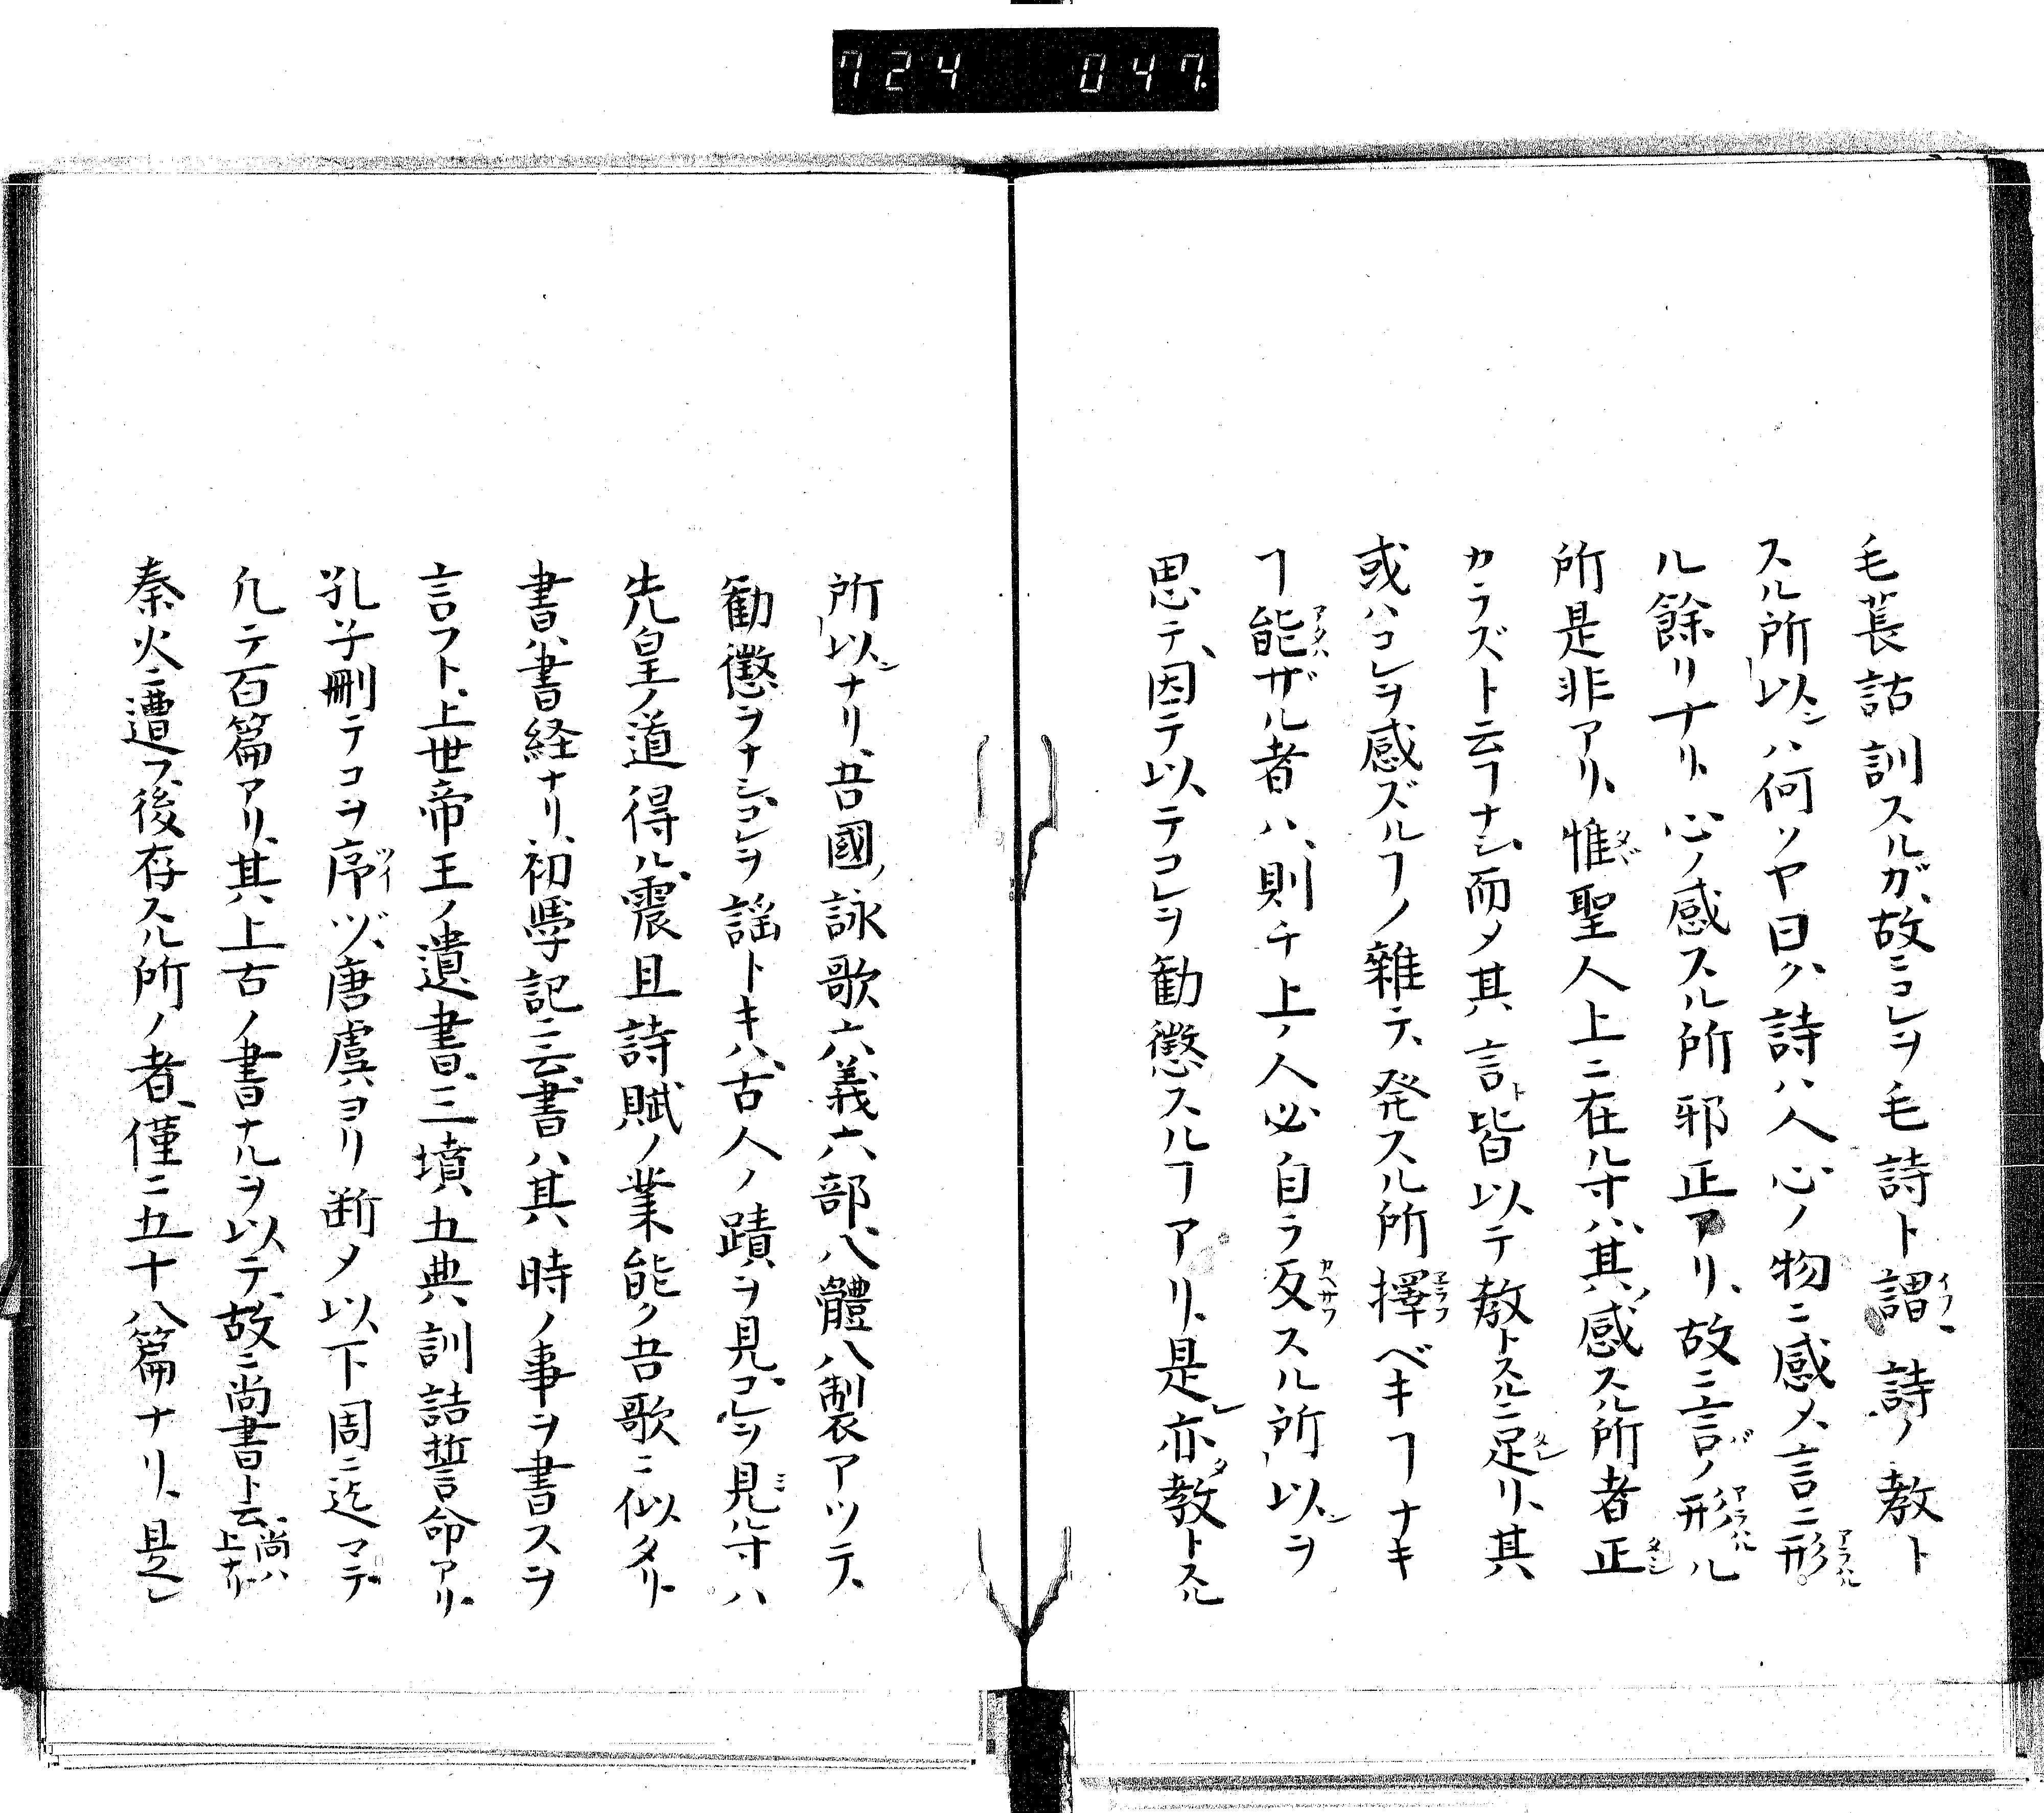 724 047.
毛萇詁訓スルガ、故ニコレヲ毛詩ト謂、詩ノ教ト
スル所以ハ何ソヤ曰ク、詩ハ人心ノ物ニ感乄、言ニ形
ル餘リナリ、心ノ感スル所邪正アリ、故ニ言ノ形ル
所是非アリ、惟聖人上ニ在ル寸ハ、其感スル所者正
カラズト云ヿナシ、而乄其言皆以テ教トスルニ足リ、其
或ハコレヲ感ズルヿノ雜テ、発スル所擇ベキヿナキ
ヿ能ザル者ハ、則チ上ノ人必自ラ反スル所以ヲ
思テ、因テ以テコレヲ勧懲スルヿアリ、是亦教トスル
所以ナリ、吾國ノ詠歌六義六部、八體八製アツテ、
勧懲ヲナシ、コレヲ謡トキハ、古人ノ蹟ヲ見、コレヲ見ル寸ハ
先皇ノ道得ル、震旦詩賦ノ業能ク吾歌ニ似タリ、
書ハ、書経ナリ、初學記ニ云、書ハ其時ノ事ヲ書スヲ
言フト、上世帝王ノ遺書、三墳、五典、訓誥誓命アリ、
孔子刪テコヲ序ヅ、唐虞ヨリ断乄以下周ニ迄マデ、
凢テ百篇アリ、其上古ノ書ナルヲ以テ、故ニ尚書ト云、尚ハ上ナリ
秦火ニ遭フ、後存スル所ノ者、僅ニ五十八篇ナリ、是レ